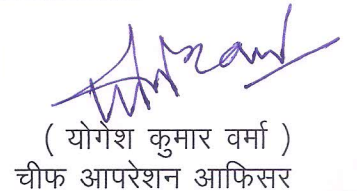 ( योगेश कुमार वर्मा )
चीफ आपरेशन आफिसर